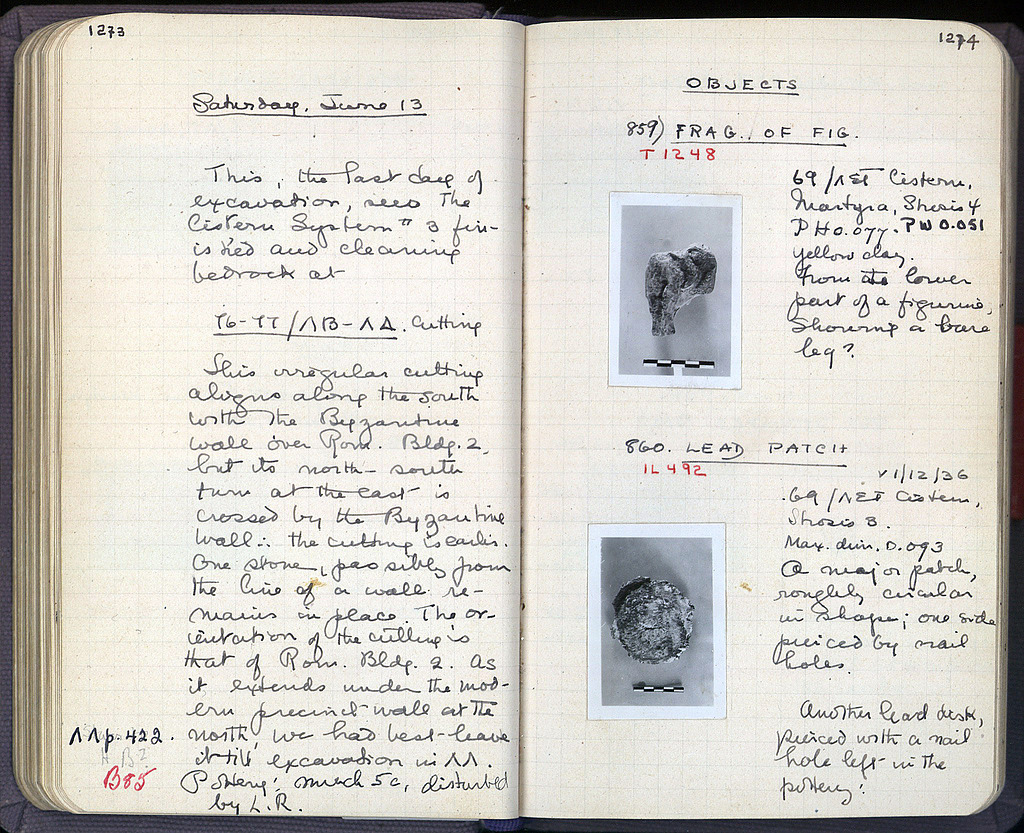 1273
Saturday, June 13
This, the last day of
excavation, sees the
Cistern System # 3 fin-
ished and cleaning
bedrock at
76-77/ΛB-ΛΔ. Cutting
This irregular cutting
aligns along the south
with the Byzantine
wall over Rom. Bldg. 2,
but its north-south
turn at the east is
crossed by the Byzantine
wall ∴ the cutting is earlier.
One stone, possibly from
the line of a wall re-
mains in place. The or-
ientation of the cutting is
that of Rom. Bldg. 2. As
it extends under the mod-
ern precinct wall at the
north, we had best leave
it till excavation in ΛΛ.
Pottery: much 5c, disturbed
by L.R.
ΛΛ p. 422.
B85
1274
OBJECTS
859) FRAG. OF FIG.
T 1248
69/ΛΣΤ Cistern,
Martyra, Strosis 4
PH 0.077. PW 0.051
Yellow clay.
From lower
part of a figurine,
Showing a bare
leg?
860. LEAD PATCH
IL 492
V 1/12/36
69/ΛΣΤ Cistern,
Strosis 3.
Max. dim. 0.093
A major patch,
roughly circular
in shape; one side
pierced by nail
holes.
Another lead disk,
pierced with a nail
hole left in the
pottery!